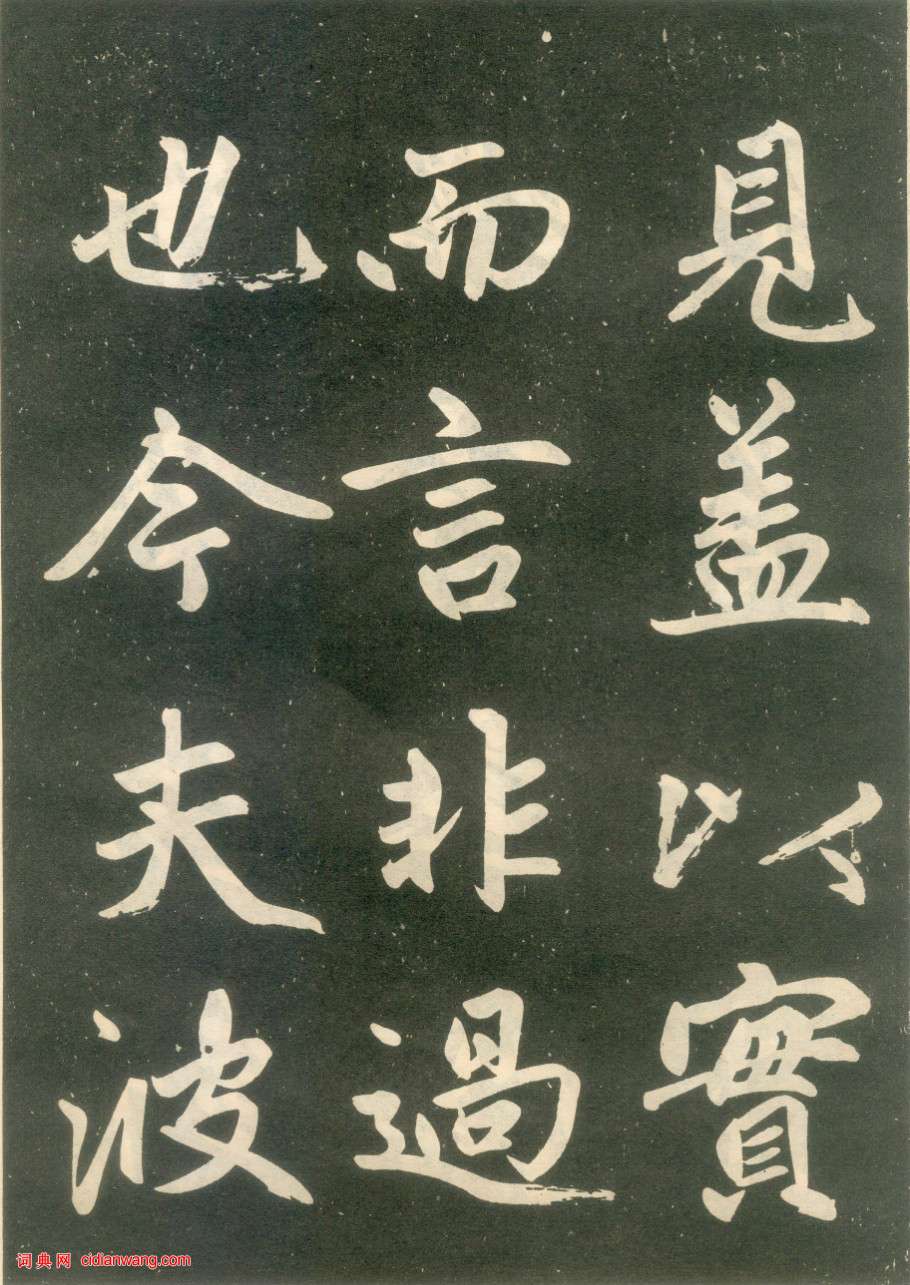 見盖以實
而言非過
也今夫波
词典网 cidianwang.com